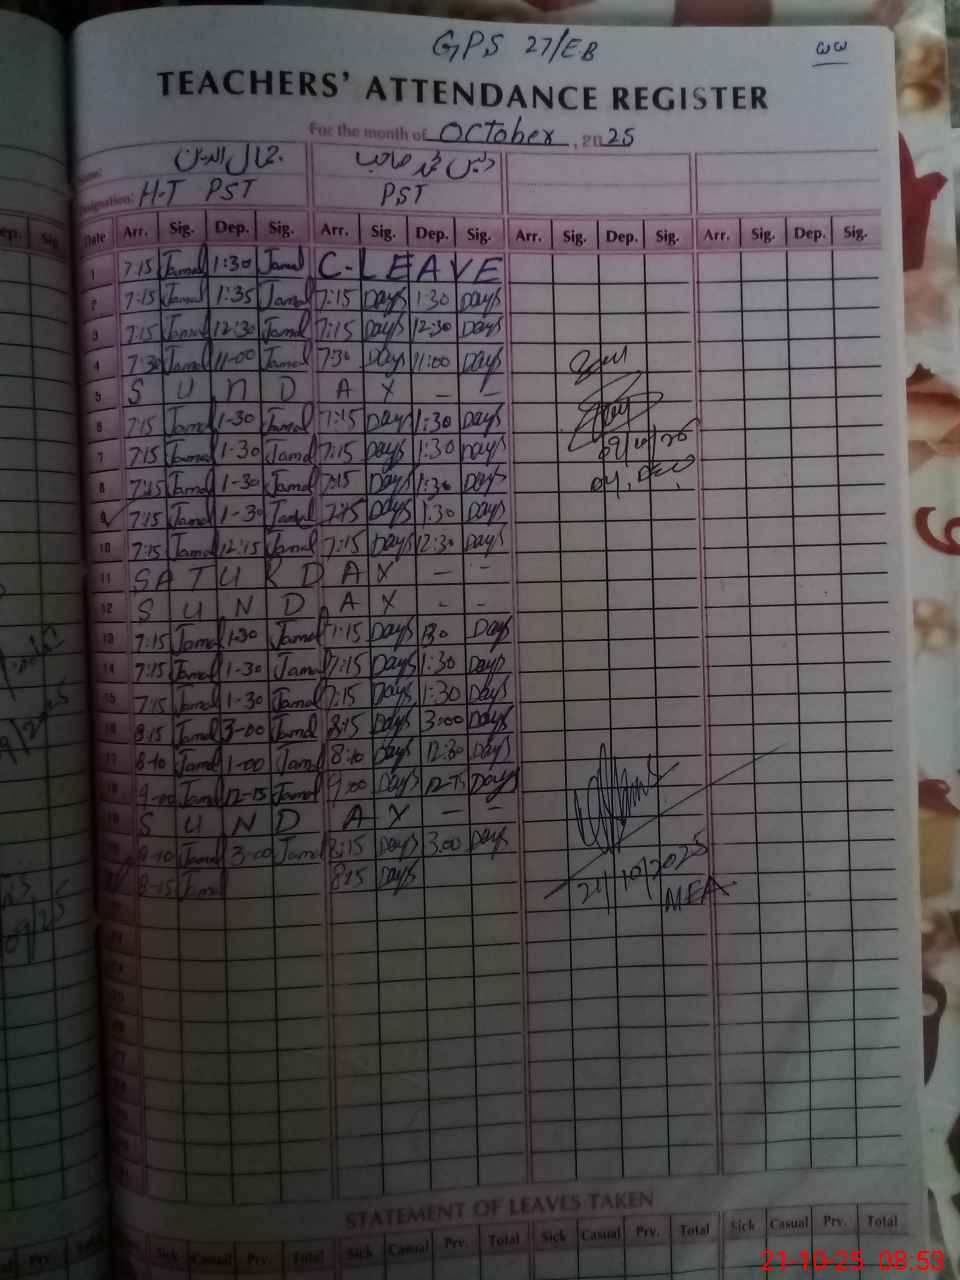 GPS 27/EB
ωω
TEACHERS' ATTENDANCE REGISTER
For the month of October, 2025
Name: جمال الدین
Designation: H-T PST PST
Date Arr. Sig. Dep. Sig. Arr. Sig. Dep. Sig. Arr. Sig. Dep. Sig. Arr. Sig. Dep. Sig.
1 7.15 Jamal 1:30 Jamal C-LEAVE
2 7:15 Jamal 1:35 Jamal 7:15 Days 1:30 Days
3 7:15 Jamal 12:30 Jamal 7:15 Days 12:30 Days
4 7:30 Jamal 11-00 Jamal 7:30 Days 11:00 Days
5 S U N D A Y — —
6 7:15 Jamal 1-30 Jamal 7:15 Days 1:30 Days
7 7:15 Jamal 1-30 Jamal 7:15 Days 1:30 Days
09/10/25
8 7:15 Jamal 1-30 Jamal 7:15 Days 1:30 Days
9 7:15 Jamal 1-30 Jamal 7:15 Days 1:30 Days
10 7:15 Jamal 12:15 Jamal 7:15 Days 12:30 Days
11 S A T U R D A Y — —
12 S U N D A Y - -
13 7:15 Jamal 1-30 Jamal 7:15 Days 1:30 Days
14 7:15 Jamal 1-30 Jamal 7:15 Days 1:30 Days
15 7:15 Jamal 1-30 Jamal 7:15 Days 1:30 Days
16 8:15 Jamal 3-00 Jamal 8:15 Days 3:00 Days
17 8-10 Jamal 1-00 Jamal 8:10 Days 12:30 Days
18 9-00 Jamal 12-15 Jamal 9:00 Days 12-15 Days
19 S U N D A Y — —
20 8-10 Jamal 3-00 Jamal 8:15 Days 3.00 Days
21 8-15 Jamal 8:15 Days
21/10/2025
MEA
STATEMENT OF LEAVES TAKEN
Sick Casual Prv. Total Sick Casual Prv. Total Sick Casual Prv. Total Sick Casual Prv. Total
21-10-25 08:53